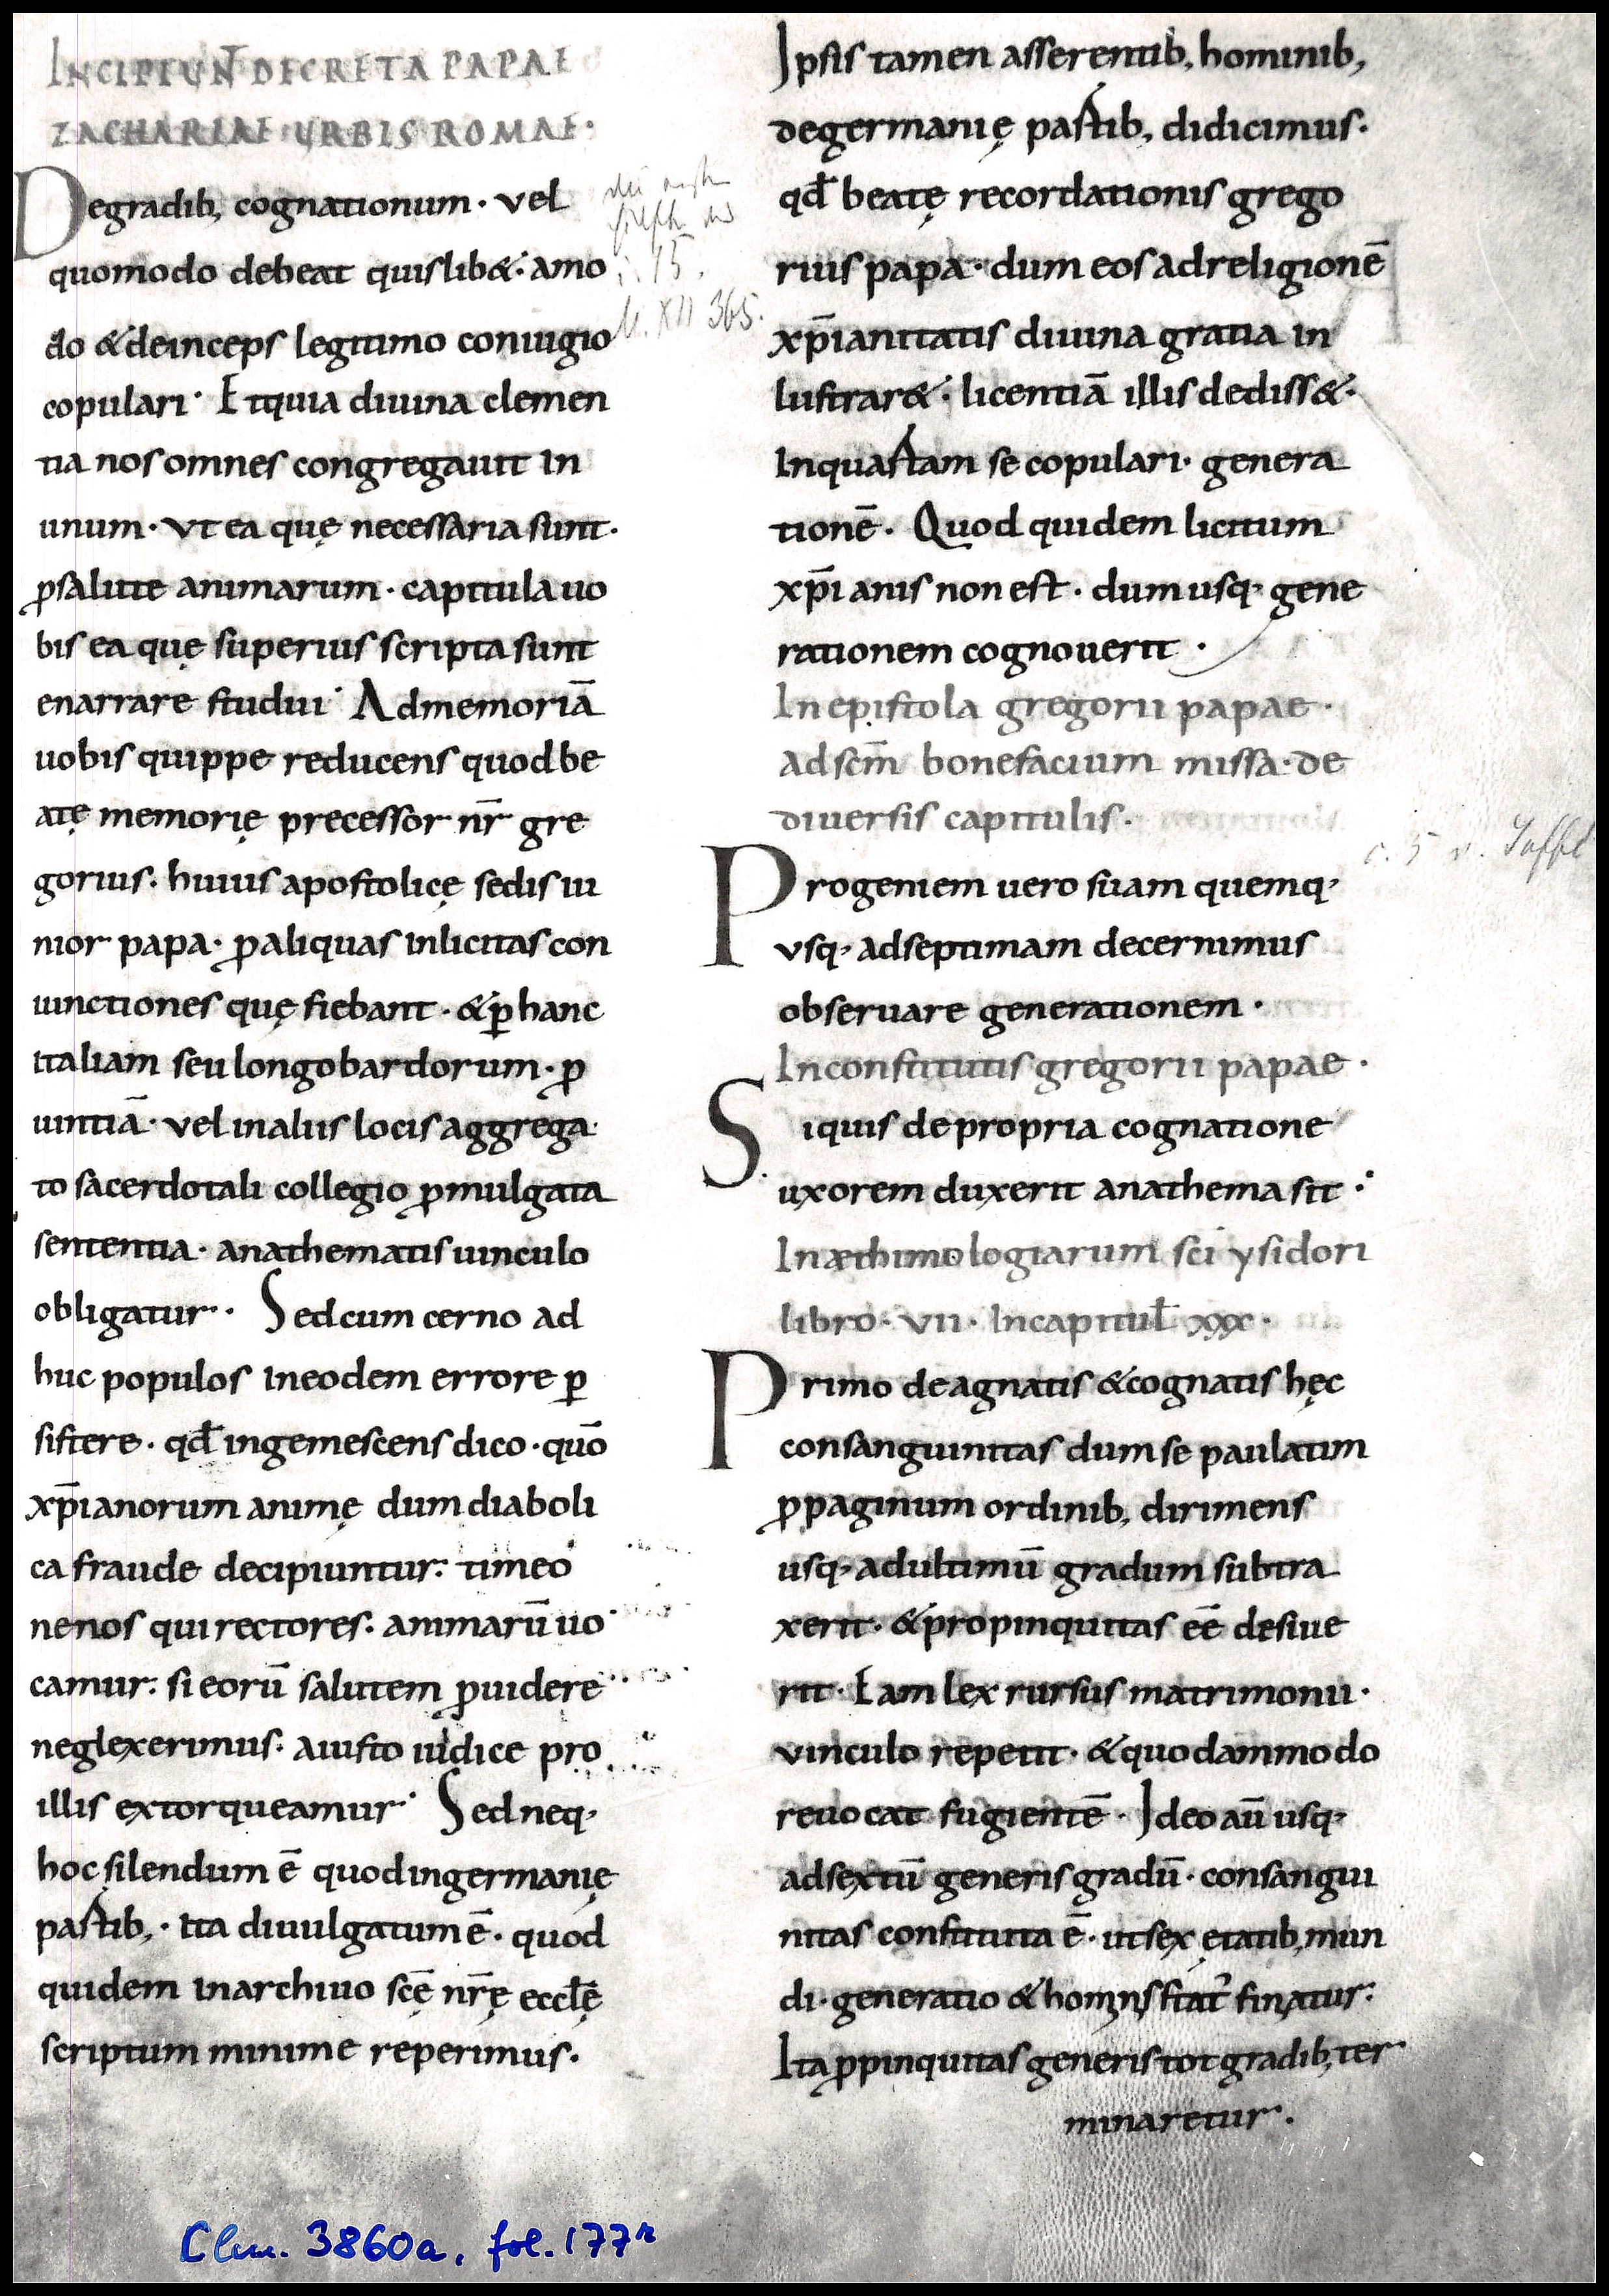 INCIPIUNT DECRETA PAPAE
ZACHARIAE URBIS ROMAE·
Degradib; cognationum· vel
quomodo debeat quislib&· amo
do &deinceps legitimo coniugio
copulari· Etquia diuina clemen
tia nos omnes congregauit in
unum· ut ea quę necessaria sunt·
ꝓsalute animarum· capitula uo
bis ea quę superius scripta sunt
enarrare studui· Admemoriā
uobis quippe reducens quod be
atę memorię precessor nr̄ gre
gorius· huius apostolicę sedis iu
nior papa· ꝓaliquas inlicitas con
iunctiones quę fiebant· &ꝑ hanc
italiam seu longobardorum· ꝓ
uintiā· vel inaliis locis aggrega
to sacerdotali collegio ꝓmulgata
sententia· anathematis uinculo
obligatur· Sed cum cerno ad
huc populos ineodem errore ꝑ
sistere· qd̄ ingemescens dico· quō
xp̄ianorum animę dum diaboli
ca fraude decipiuntur: timeo
ne nos qui rectores· animarū uo
camur: si eorū salutem ꝓuidere
neglexerimus· aiusto iudice pro
illis extorqueamur· Sed neq;
hoc silendum ē quod ingermanię
partib;· ita diuulgatum ē· quod
quidem inarchiuo scę̄ nr̄ę eccl̄ę
scriptum minime reperimus·
Ipsis tamen asserentib; hominib;
degermanię partib; didicimus·
qd̄ beatę recordationis grego
rius papa· dum eos adreligionē
xp̄ianitatis diuina gratia in
lustrar&· licentiā illis dediss&·
Inquartam se copulari· genera
tionē· Quod quidem licitum
xp̄ianis non est· dum usq; gene
rationem cognouerit·
In epistola gregorii papae·
ad scm̄ bonefacium missa· de
diuersis capitulis·
Progeniem uero suam quemq;
usq; adseptimam decernimus
obseruare generationem·
In constitutis gregorii papae·
Siquis de propria cognatione
uxorem duxerit anathema sit·
In æthimologiarum sci ysidori
libro· VII· In capitul̄ xxx·
Primo de agnatis &cognatis hęc
consanguinitas dum se paulatim
ꝓpaginum ordinib; dirimens
usq; adultimū gradum subtra
xerit· &propinquitas eē desiue
rit· Eam lex rursus matrimonii·
vinculo repetit· &quodammodo
reuocat fugientē· Ideo aū usq;
adsextū generis gradū· consangui
nitas constituta ē· ut sex ętatib; mun
di· generatio &hominis statˀ finiatur:
Ita ꝓpinquitas generis tot gradib; ter
minaretur·
c. 5 v. Jaffé
Clm. 3860a, fol. 177r